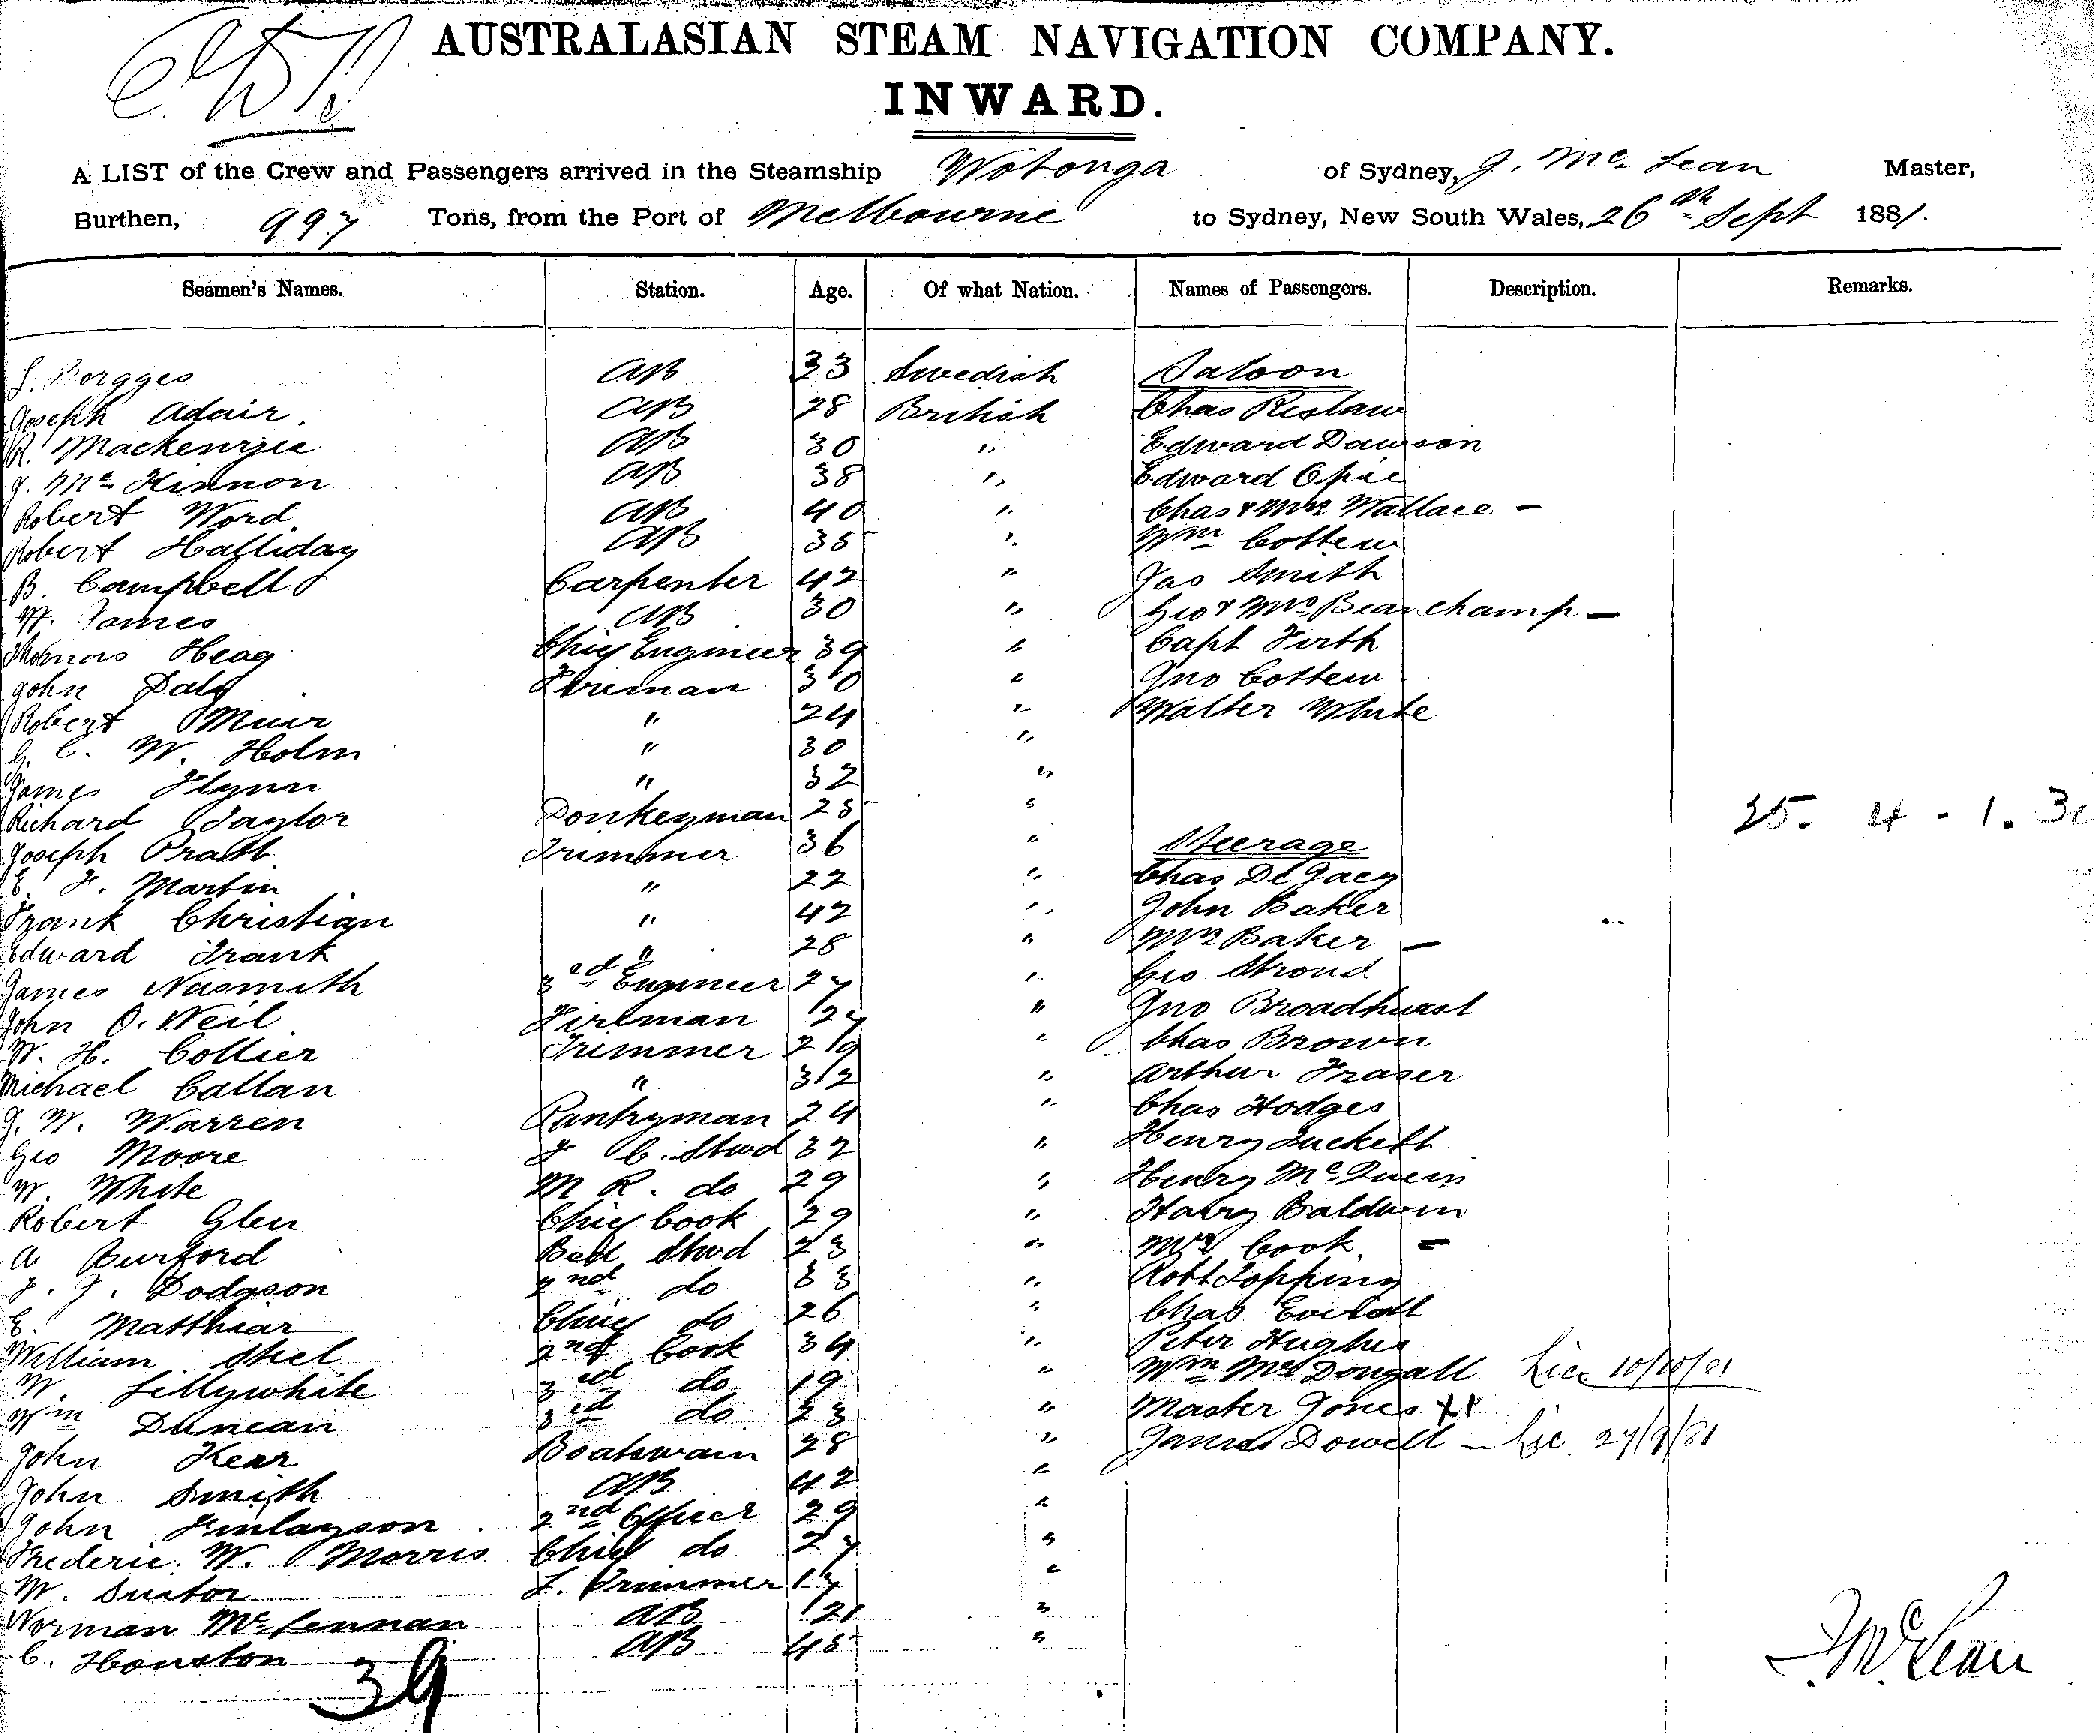 AUSTRALASIAN STEAM NAVIGATION COMPANY.
INWARD.
A LIST of the Crew and Passengers arrived in the Steamship Wotonga of Sydney, J. Mc Lean Master,
Burthen, 997 Tons, from the Port of Melbourne to Sydney, New South Wales, 26th Sept 1881.
Seamen's Names. Station. Age. Of what Nation. Names of Passengers. Description. Remarks.
AB 33 Swedish Saloon
Joseph Adair. AB 28 British Chas Ristaw
R. Mackenzie AB 30 " Edward Dawson
J. Mc Kinnon AB 38 " Edward Opie
Robert Word. AB 40 " Chas & Mrs Wallace -
Robert Halliday AB 35 " Wm Cottew
B. Campbell Carpenter 42 " Jas Smith
W. James AB 30 " Geo & Mrs Beauchamp -
Thomas Heag Chief Engineer 39 " Capt Firth
John Daly Fireman 30 " Jno Cottew
Robert Muir " 24 " Walter White
G. C. W. Holm " 30 "
James Flynn " 32 "
Richard Taylor Donkeyman 25 " 25. 4 - 1. 30
Joseph Pratt Trimmer 36 " Steerage
E. F. Martin " 22 " Chas De Gaey
Frank Christian " 42 " John Baker
Edward Frank " 28 " Mrs Baker -
James Nasmith 3rd Engineer 27 " Geo Stroud
John O. Neil Fireman 27 " Jno Broadhurst
W. H. Collier Trimmer 29 " Chas Brown
Michael Callan " 32 " Arthur Fraser
J. W. Warren Pantryman 24 " Chas Hodges
Geo Moore F C. Stwd 32 " Henry Luckett
W. White M R. do 29 " Henry Mc Queen
Robert Glen Chief Cook 29 " Harry Baldwin
A Burford Bed Stwd 23 " Mrs Cook. -
F. J. Dodgson 2nd do 33 " Robt Topping
E. Matthiar Chief do 26 " Chas Everett
William Skel 2nd Cook 34 " Peter Hughes
W. Lillywhite 3rd do 19 " Wm McDougall Lic 10/10/81
Wm Duncan 3rd do 23 " Master Jones
John Kear Boatswain 28 " James Dowell - Lic 27/9/81
John Smith AB 42 "
John Finlayson 2nd Officer 29 "
Frederic. W. Morris Chief do 27 "
W. Suttor L. Trimmer 17 "
Norman McLennan AB 21 "
C. Houston AB 45 "
39
J McLean